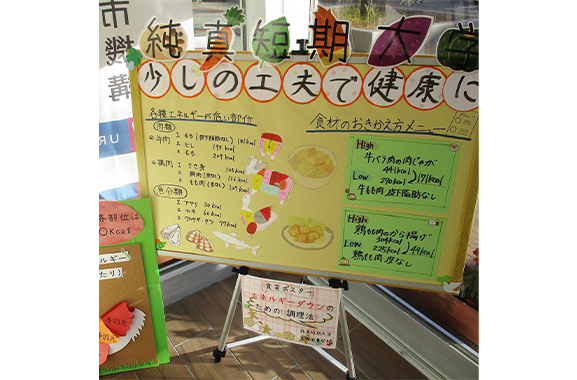 市機構
UR
純真短期大学
少しの工夫で健康に
各種エネルギーが低い部位
肉類
牛肉
1 もも(皮下脂肪なし) 181kcal
2 ヒレ
3 もも 209kcal
鶏肉
1 ささ身 105kcal
2 胸肉(皮なし) 116kcal
3 もも肉(皮なし)
魚介類
1 アサリ 30kcal
2 カキ 60kcal
食材のおきかえ方メニュー
High
牛バラ肉の肉じゃが
441kcal
Low
270kcal
171kcal
牛もも肉皮下脂肪なし
High
鶏もも肉のから揚げ
304kcal
Low
225kcal
鶏もも肉皮なし
各部位は
〇Kcal
エネルギー
たり)
食育ポスター
エネルギーダウンの
ための調理法